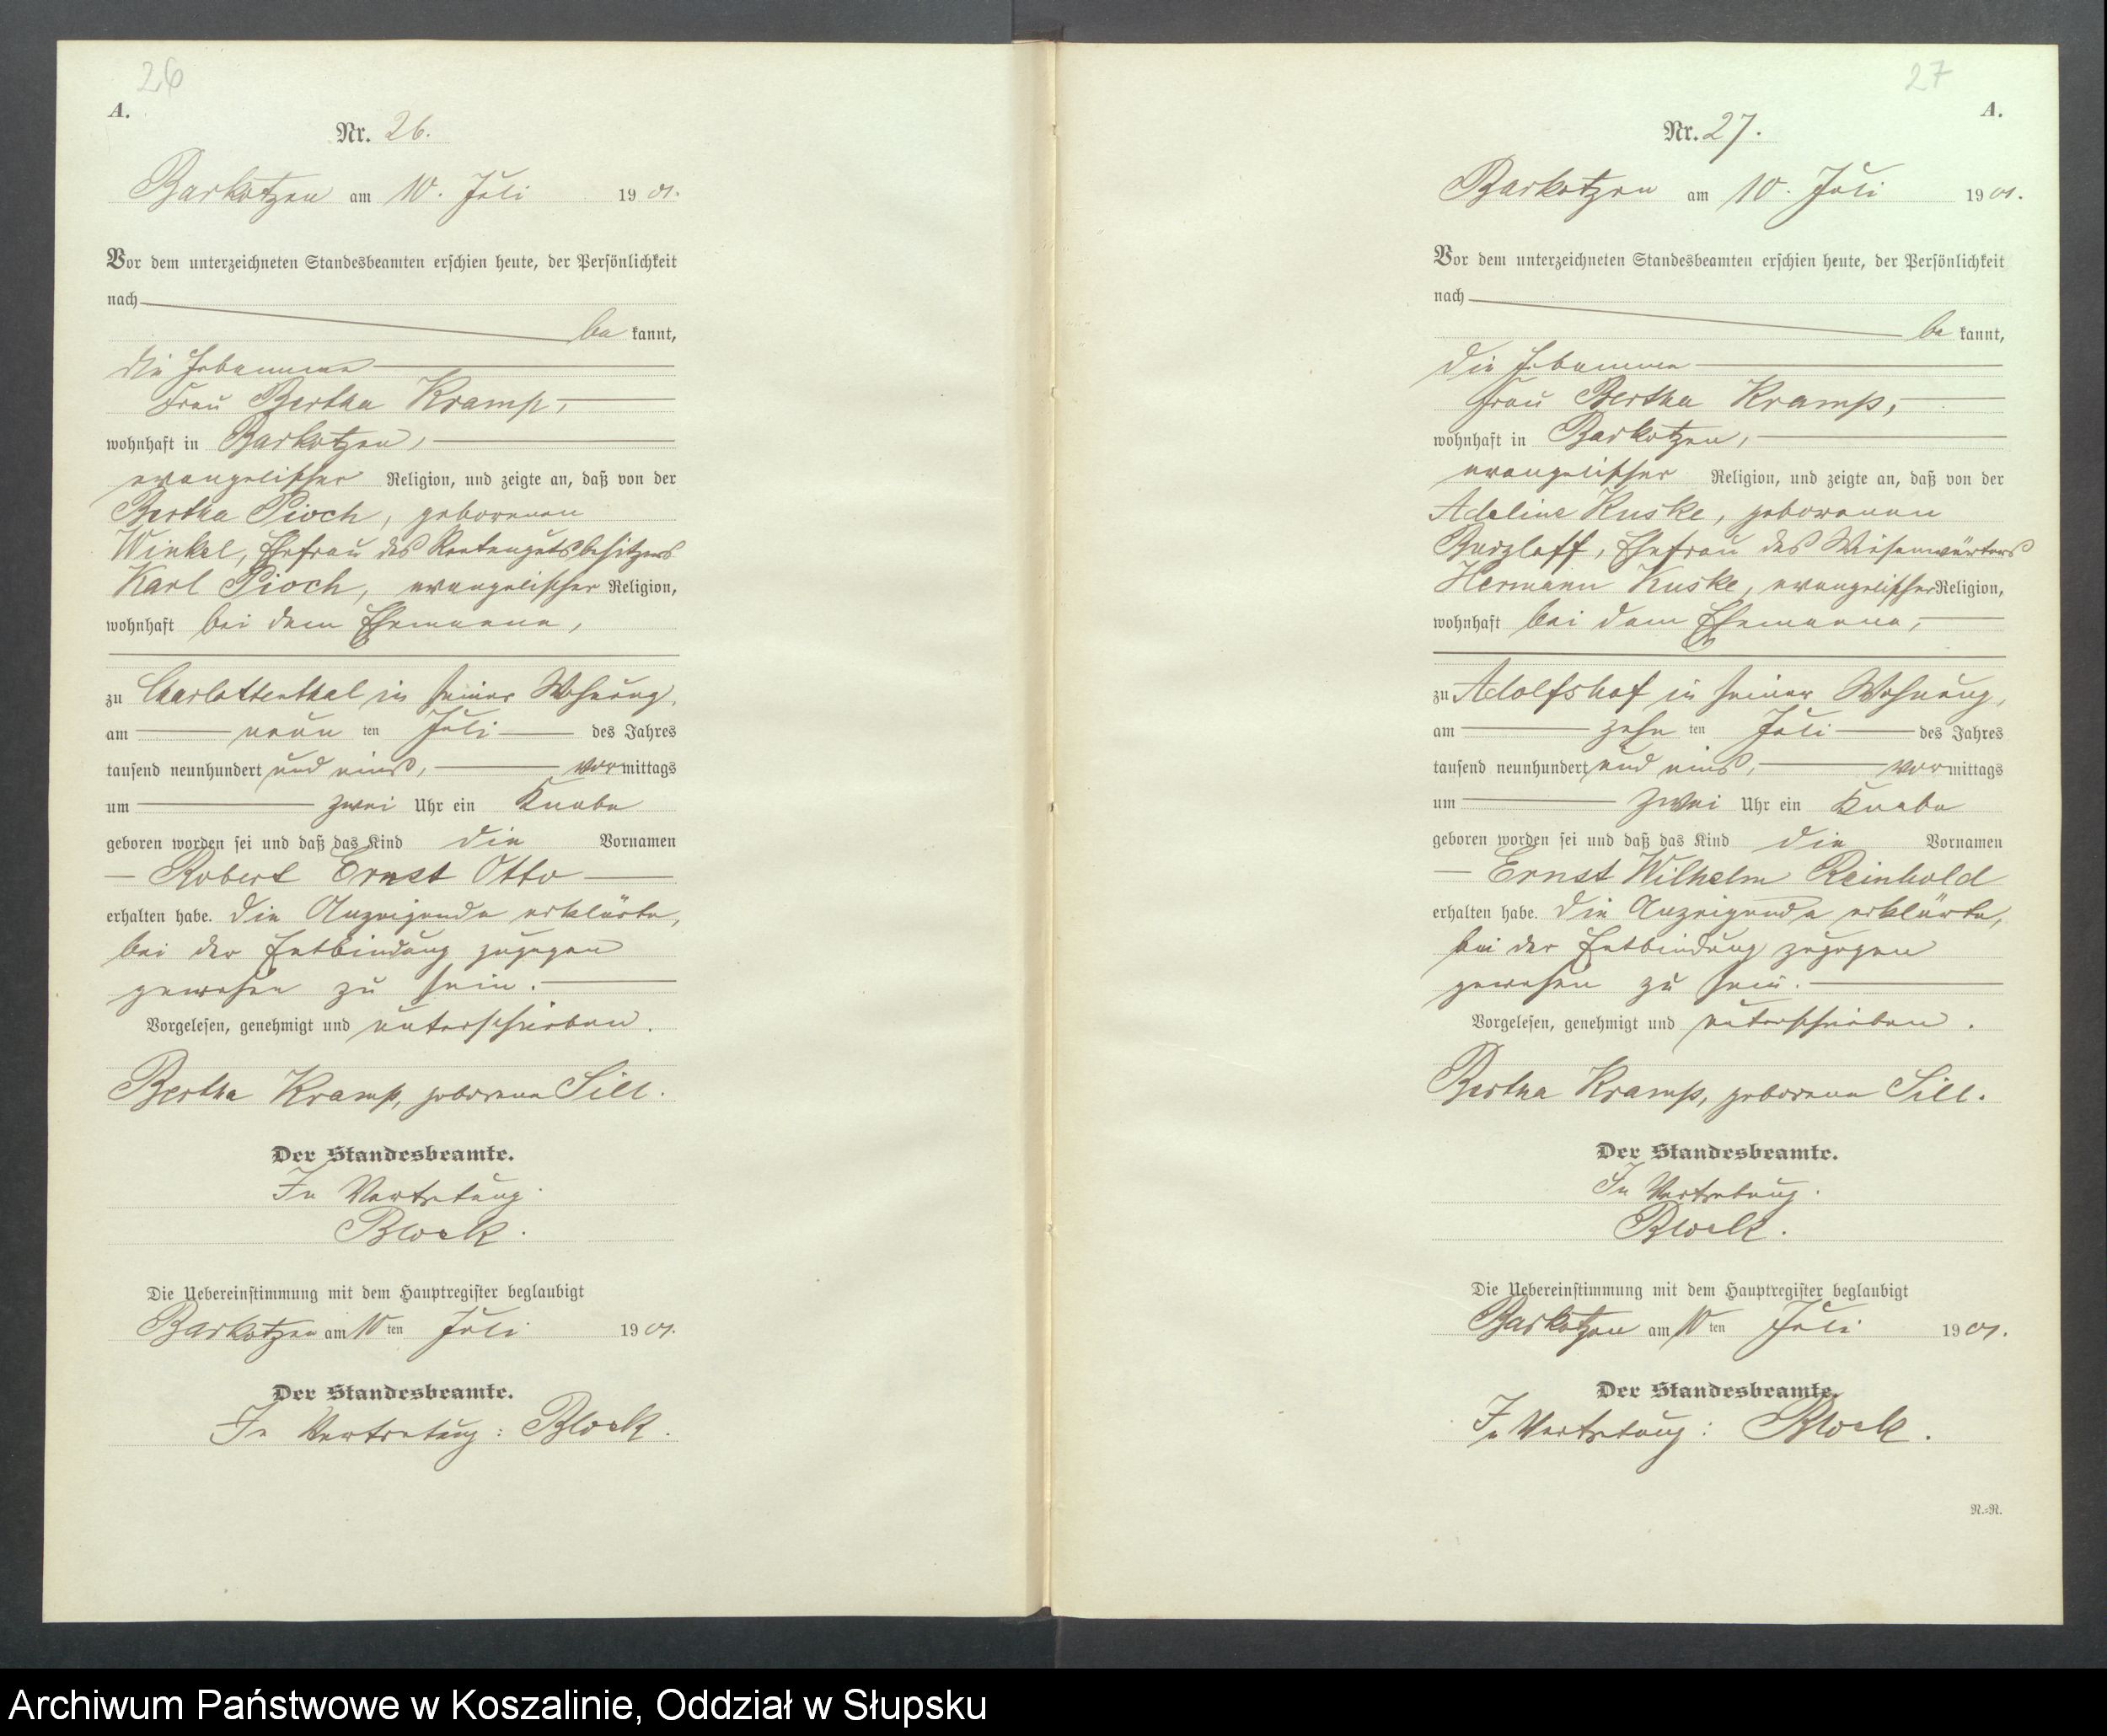 26
A.
Nr. 26.
Barkotzen am 10. Juli 1901.
Vor dem unterzeichneten Standesbeamten erschien heute, der Persönlichkeit
nach
be kannt,
die Hebamme
Frau Bertha Kramp,
wohnhaft in Barkotzen,
evangelischer Religion, und zeigte an, daß von der
Bertha Pioch, geborenen
Winkel, Ehefrau des Rentengutsbesitzers
Karl Pioch, evangelischer Religion,
wohnhaft bei dem Ehemanne,
zu Charlottenthal in seiner Wohnung,
am neun ten Juli des Jahres
tausend neunhundert und eins, vormittags
um zwei Uhr ein Knabe
geboren worden sei und daß das Kind die Vornamen
Robert Ernst Otto
erhalten habe. Die Anzeigende erklärte,
bei der Entbindung zugegen
gewesen zu sein.
Vorgelesen, genehmigt und unterschrieben.
Bertha Kramp, geborene Sill.
Der Standesbeamte.
In Vertretung.
Block.
Die Uebereinstimmung mit dem Hauptregister beglaubigt
Barkotzen am 10 ten Juli 1901.
Der Standesbeamte.
In Vertretung: Block.
27
A.
Nr. 27.
Barkotzen am 10. Juli 1901.
Vor dem unterzeichneten Standesbeamten erschien heute, der Persönlichkeit
nach
be kannt,
die Hebamme
Frau Bertha Kramp,
wohnhaft in Barkotzen,
evangelischer Religion, und zeigte an, daß von der
Adeline Kuske, geborenen
Barzlaff, Ehefrau des Wiesenwärters
Hermann Kuske, evangelischer Religion,
wohnhaft bei dem Ehemanne,
zu Adolfshof in seiner Wohnung,
am zehn ten Juli des Jahres
tausend neunhundert und eins, vormittags
um zwei Uhr ein Knabe
geboren worden sei und daß das Kind die Vornamen
Ernst Wilhelm Reinhold
erhalten habe. Die Anzeigende erklärte,
bei der Entbindung zugegen
gewesen zu sein.
Vorgelesen, genehmigt und unterschrieben.
Bertha Kramp, geborene Sill.
Der Standesbeamte.
In Vertretung.
Block.
Die Uebereinstimmung mit dem Hauptregister beglaubigt
Barkotzen am 10 ten Juli 1901.
Der Standesbeamte.
In Vertretung: Block.
N.=R.
Archiwum Państwowe w Koszalinie, Oddział w Słupsku